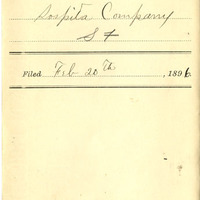 Sospita Company
Filed Feb 20th, 1896